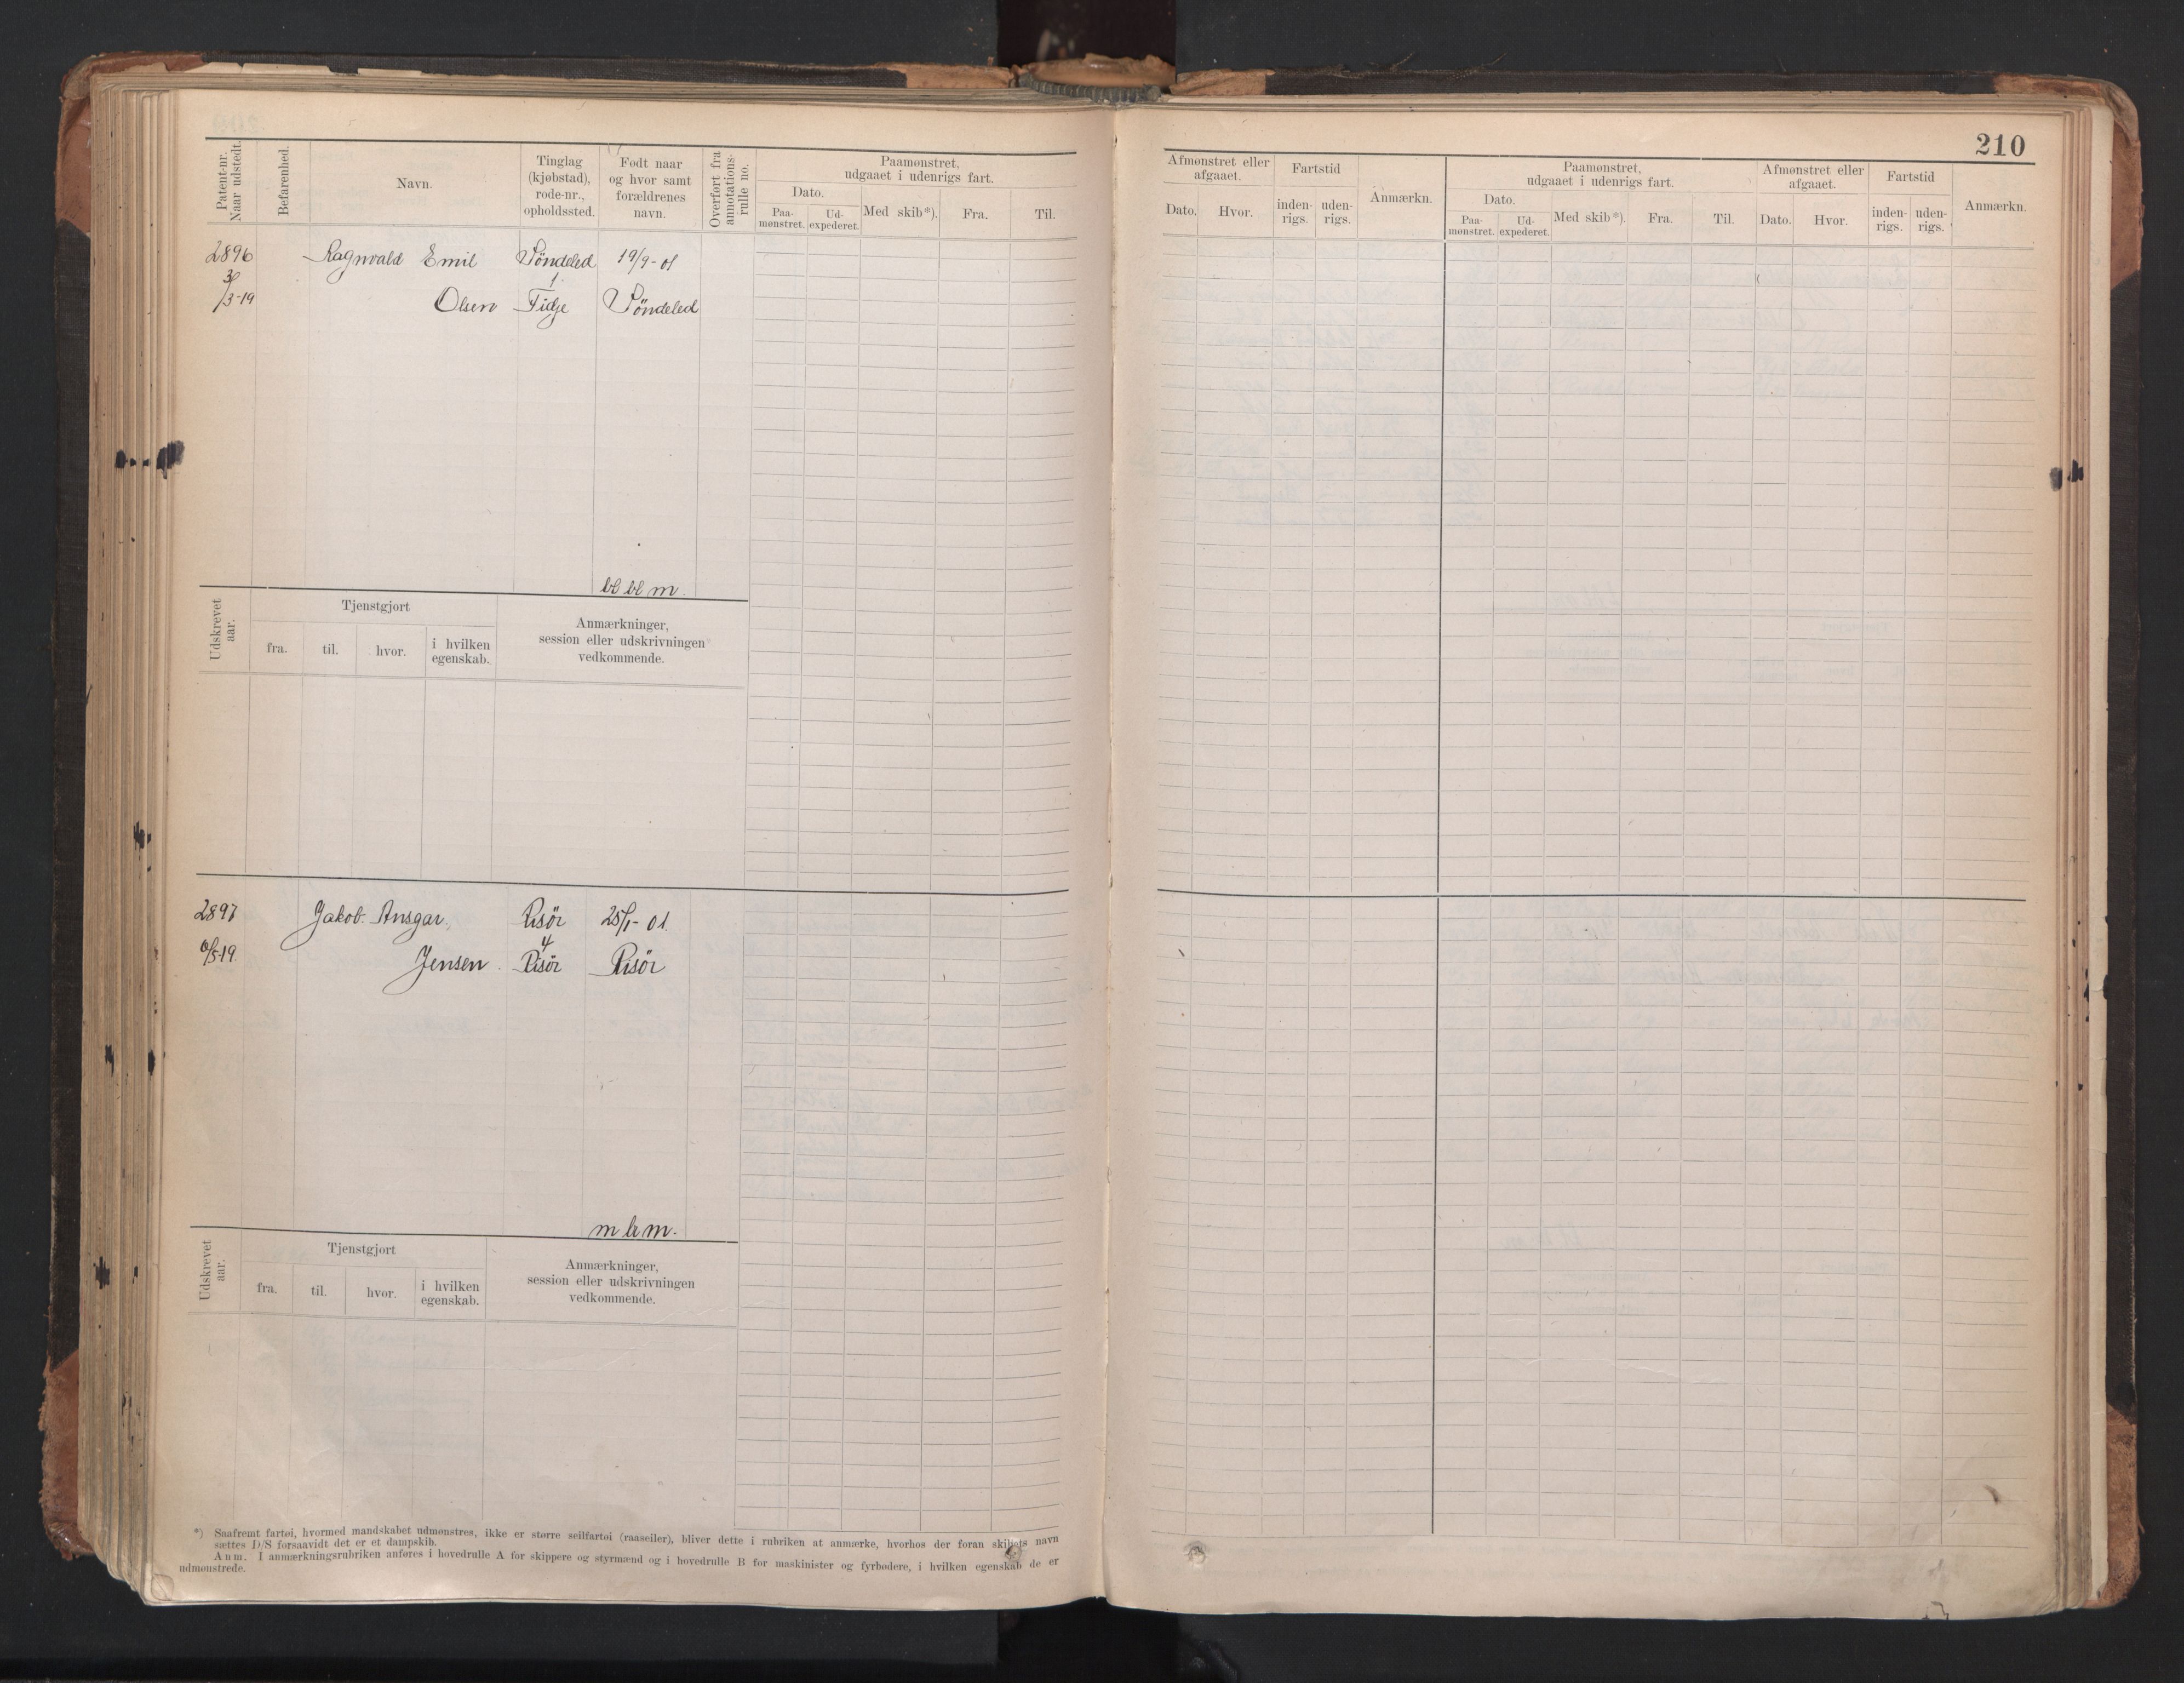 210
Patent-nr. Naar udstedt.
Befarenhed.
Navn.
Tinglag (kjøbstad), rode-nr., opholdssted.
Født naar og hvor samt forældrenes navn.
Overført fra annotations-rulle no.
Paamønstret, udgaaet i udenrigs fart.
Dato.
Paa-mønstret.
Ud-expederet.
Med skib*).
Fra.
Til.
Afmønstret eller afgaaet.
Dato.
Hvor.
Fartstid
inden-rigs.
uden-rigs.
Anmærkn.
Paamønstret, udgaaet i udenrigs fart.
Dato.
Paa-mønstret.
Ud-expederet.
Med skib*).
Fra.
Til.
Afmønstret eller afgaaet.
Dato.
Hvor.
Fartstid
inden-rigs.
uden-rigs.
Anmærkn.
2896 Ragnvald Emil Söndeled 19/9-01
1
/3-19 Olsen Fidje Söndeled
bl bl m.
Udskrevet aar.
Tjenstgjort
fra.
til.
hvor.
i hvilken egenskab.
Anmærkninger,
session eller udskrivningen
vedkommende.
2897 Jakob Ansgar Risör 25/1-01.
4
6/5-19. Jensen. Risör Risör
m b m.
Udskrevet aar.
Tjenstgjort
fra.
til.
hvor.
i hvilken egenskab.
Anmærkninger,
session eller udskrivningen
vedkommende.
*) Saafremt fartøi, hvormed mandskabet udmønstres, ikke er større seilfartøi (raaseiler), bliver dette i rubriken at anmærke, hvorhos der foran skibets navn
sættes D/S forsaavidt det er et dampskib.
Anm. I anmærkningsrubriken anføres i hovedrulle A for skippere og styrmænd og i hovedrulle B for maskinister og fyrbødere, i hvilken egenskab de er
udmønstrede.